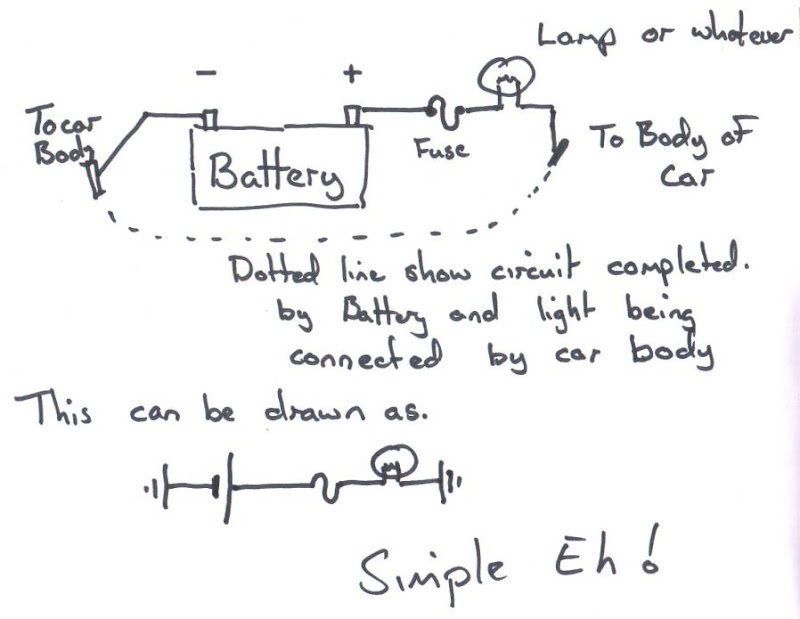 Lamp or whatever
- +
To car
Body
Battery
Fuse
To Body of
Car
Dotted line show circuit completed.
by Battery and light being
connected by car body
This can be drawn as.
Simple Eh!